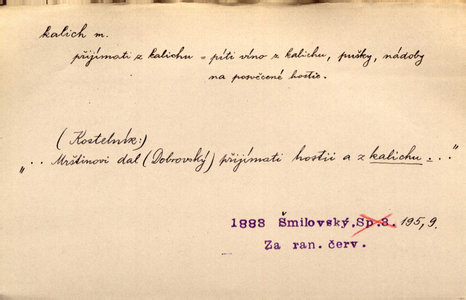 kalich m.
přijímati z kalichu = píti víno z kalichu, pušky, nádoby
na posvěcené hostie.
(Kostelník:)
„.. Mrštinovi dal (Dobrovský) přijímati hostii a z kalichu ...“
1883 Šmilovský, Sp.3. 195,9.
Za ran. červ.